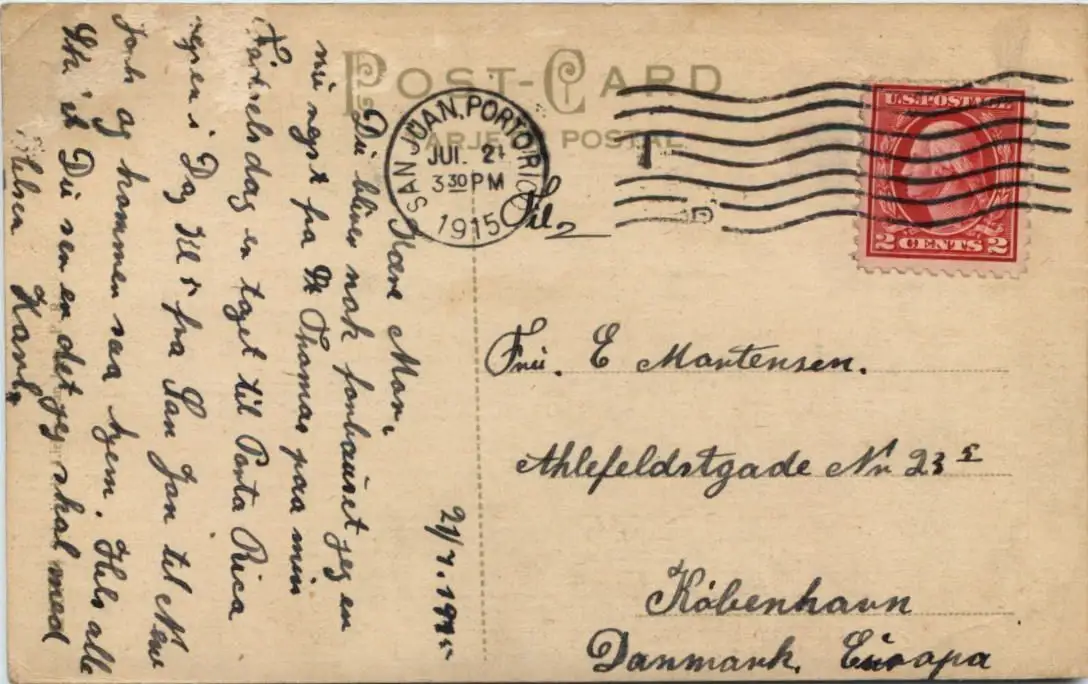 POST-CARD
TARJETA POSTAL
SAN JUAN, PORTO RICO
JUL 21
3 30 PM
1915
U.S. POSTAGE
2 CENTS 2
21/7.1915
Kære Mor.
Du bliver nok forbauset jeg en
nu rejst fra St Thomas paa min
Fødselsdag en taget til Porto Rica
rejser i Dag Kl 5 fra San Jan til New
York og kommer saa hjem. Hils alle
Skr at Du ser en det jeg skal med
Hilsen Karl.
Til
Fru. E Martensen.
Ahlefeldstgade Nr 23 E
København
Danmark. Europa